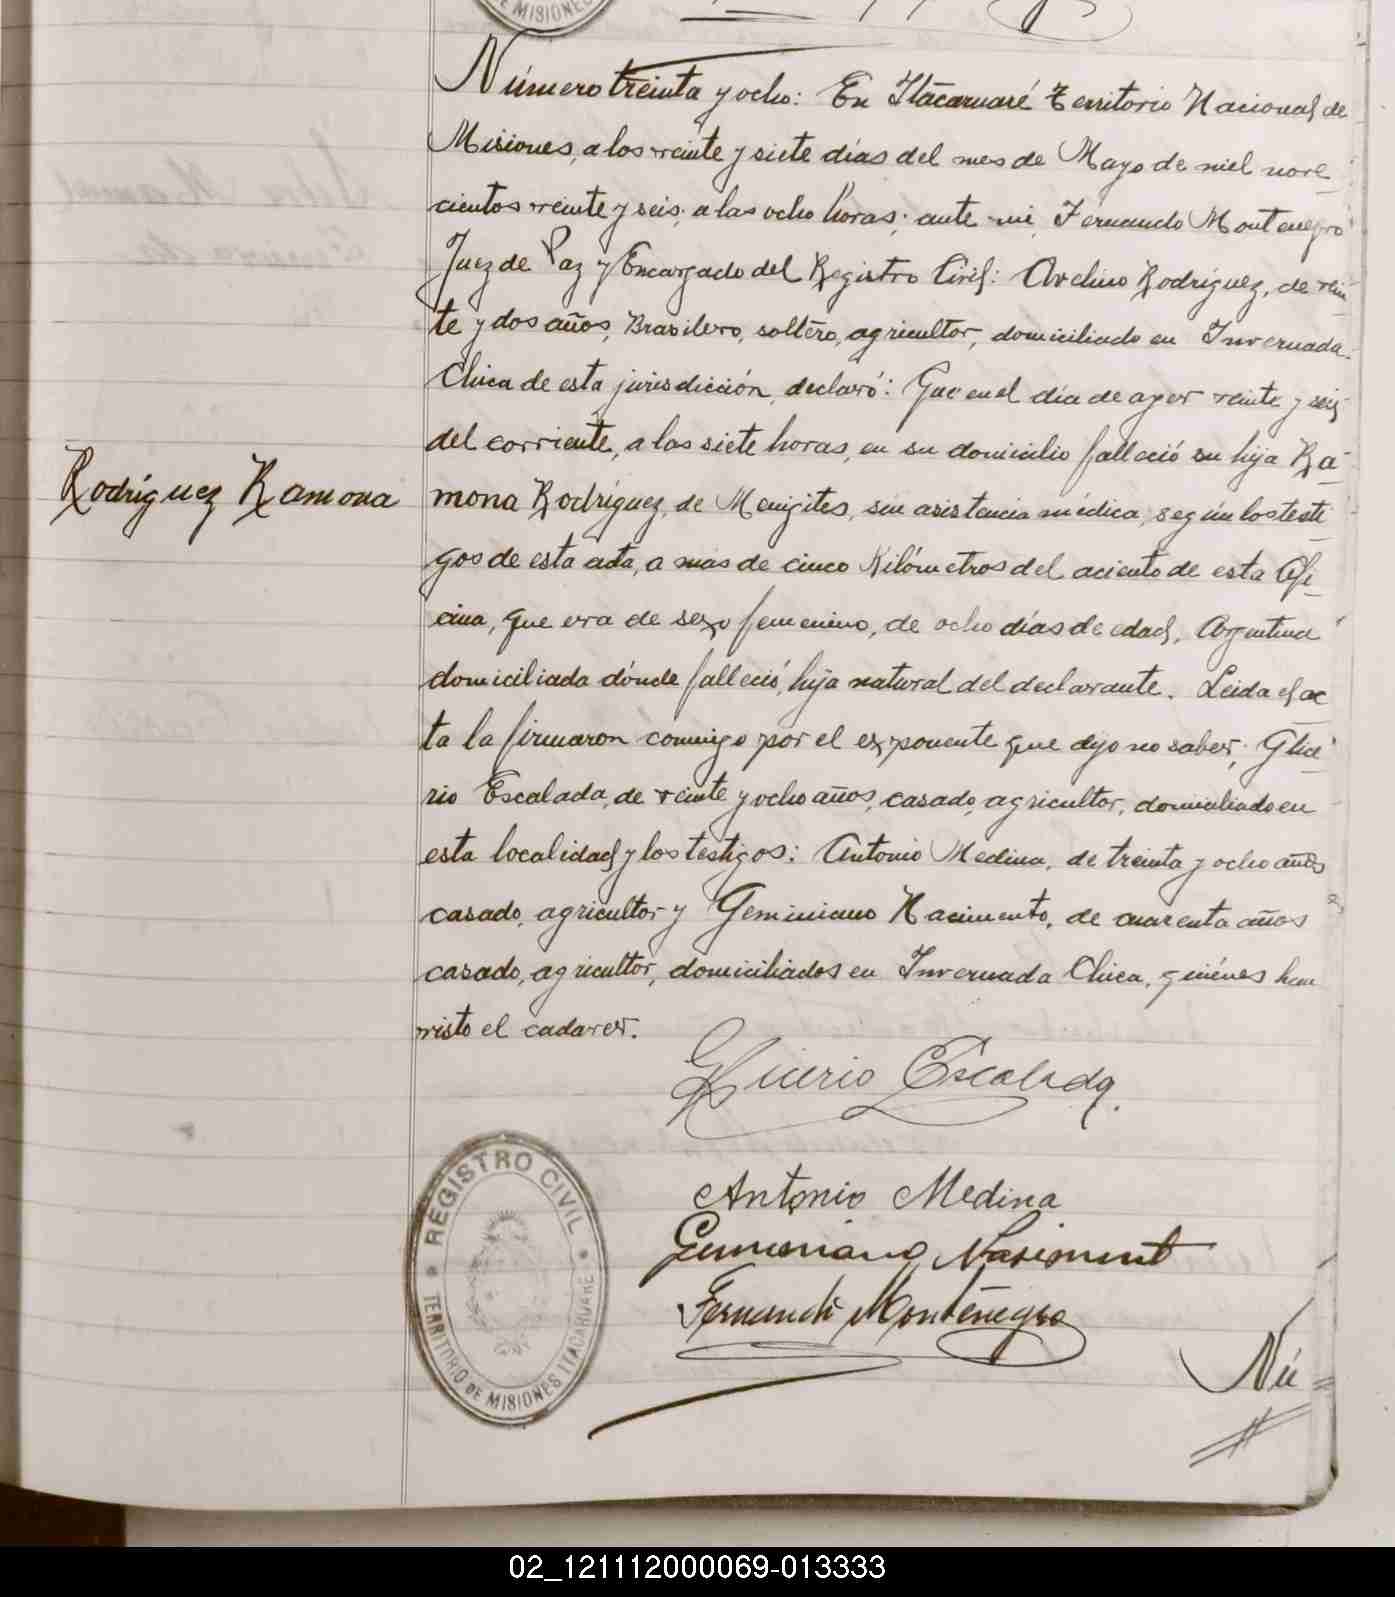 DE MISIONES
Número treinta y ocho: En Itacaruaré Territorio Nacional de
Misiones, a los veinte y siete días del mes de Mayo de mil nove-
cientos veinte y seis, a las ocho horas; ante mi, Fernando Montenegro
Juez de Paz y Encargado del Registro Civil: Avelino Rodríguez, de vein-
te y dos años, Brasilero, soltéro, agricultor, domiciliado en Invernada
Chica de esta jurisdicción, declaró: Que en el día de ayer veinte y seis
del corriente, a las siete horas, en su domicilio falleció su hija Ra-
Rodríguez Ramona
mona Rodríguez, de Menigites, sin asistencia médica, según los testi
gos de esta acta, a mas de cinco Kilómetros del aciento de esta Ofi-
cina, que era de sexo femenino, de ocho días de edad, Argentina
domiciliada dónde falleció, hija natural del declarante. Leida el ac-
ta la firmaron conmigo por el exponente que dijo no saber, Glice-
rio Escalada, de veinte y ocho años, casado, agricultor, domiciliado en
esta localidad y los testigos: Antonio Medina, de treinta y ocho años
casado, agricultor y Geminiano Nacimento, de cuarenta años
casado, agricultor, domiciliados en Invernada Chica, quiénes han
visto el cadaver.
Glicerio Escalada
Antonio Medina
Geminiano Nasiment
Fernando Montenegro
REGISTRO CIVIL
TERRITORIO DE MISIONES ITACARUARE
Nú
02_121112000069-013333